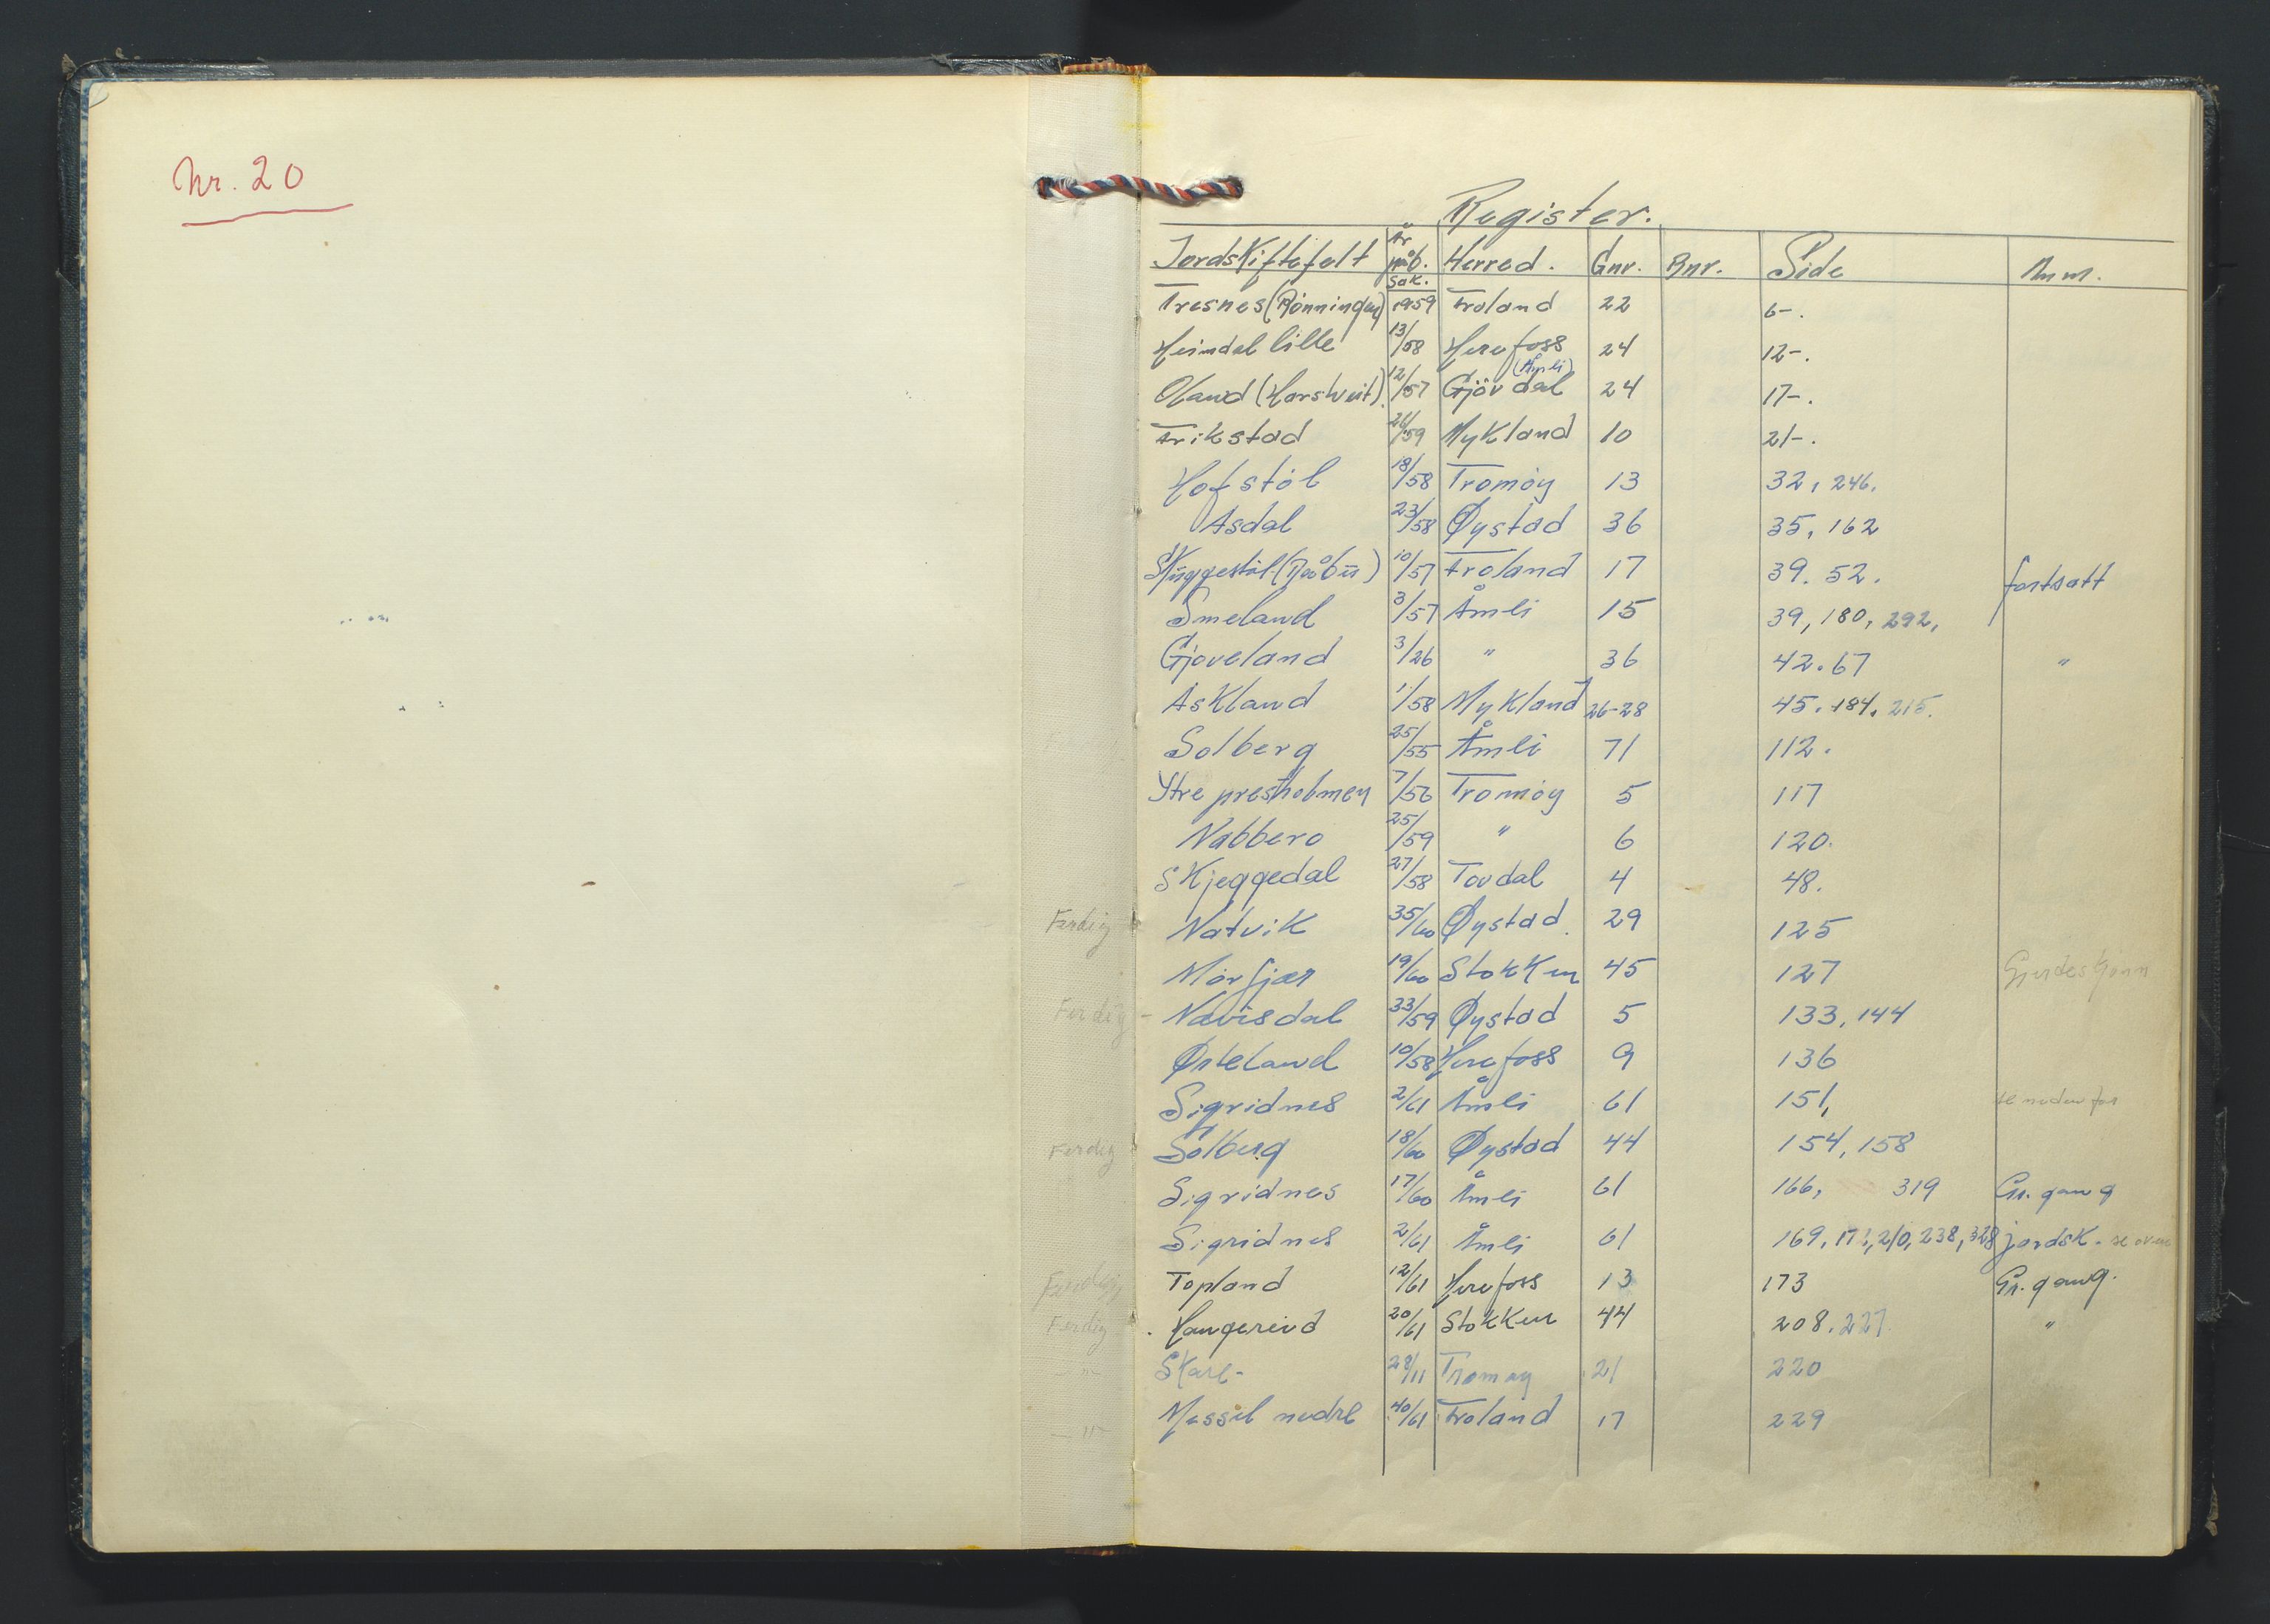 Nr. 20
Register.
Jordskiftefelt År påb. sak. Herred. Gnr. Bnr. Side Anm.
Tresnes (Rønningen) 1959 Froland 22 6-.
Heimdal lille 13/58 Herefoss 24 12-.
Oland (Harstveit) 12/57 Gjøvdal (Åmli) 24 17-.
Frikstad 26/59 Mykland 10 21-.
Hofstøl 18/58 Tromøy 13 32, 246.
Asdal 23/58 Øystad 36 35, 162
Skuggestøl (Bøbu) 10/57 Froland 17 39. 52. fortsatt
Smeland 3/57 Åmli 15 39, 180, 292,
Gjøveland 3/26 " 36 42. 67 "
Askland 1/58 Mykland 26-28 45. 184. 215.
Solberg 25/55 Åmli 71 112.
Ytre prestholmen 7/56 Tromøy 5 117
Nabbero 25/59 " 6 120.
Skjeggedal 27/58 Tovdal 4 48.
Ferdig Natvik 35/60 Øystad. 29 125
Mørfjær 19/60 Stokken 45 127 Gjerdeskjønn
Ferdig - Navisdal 33/59 Øystad 5 133, 144
Østeland 10/58 Herefoss 9 136
Sigridnes 2/61 Åmli 61 151, se nedenfor
Ferdig Solberg 18/60 Øystad 44 154, 158
Sigridnes 17/60 Åmli 61 166, 319 Gr. gang
Sigridnes 2/61 Åmli 61 169, 172, 210, 238, 328 jordsk. - se oven
Ferdig Topland 12/61 Herefoss 13 173 Gr. gang.
Ferdig Haugereid 20/61 Stokken 44 208. 227 "
-"- Skare- 28/11 Tromøy 21 220
-"- Messel nedre 40/61 Froland 17 229